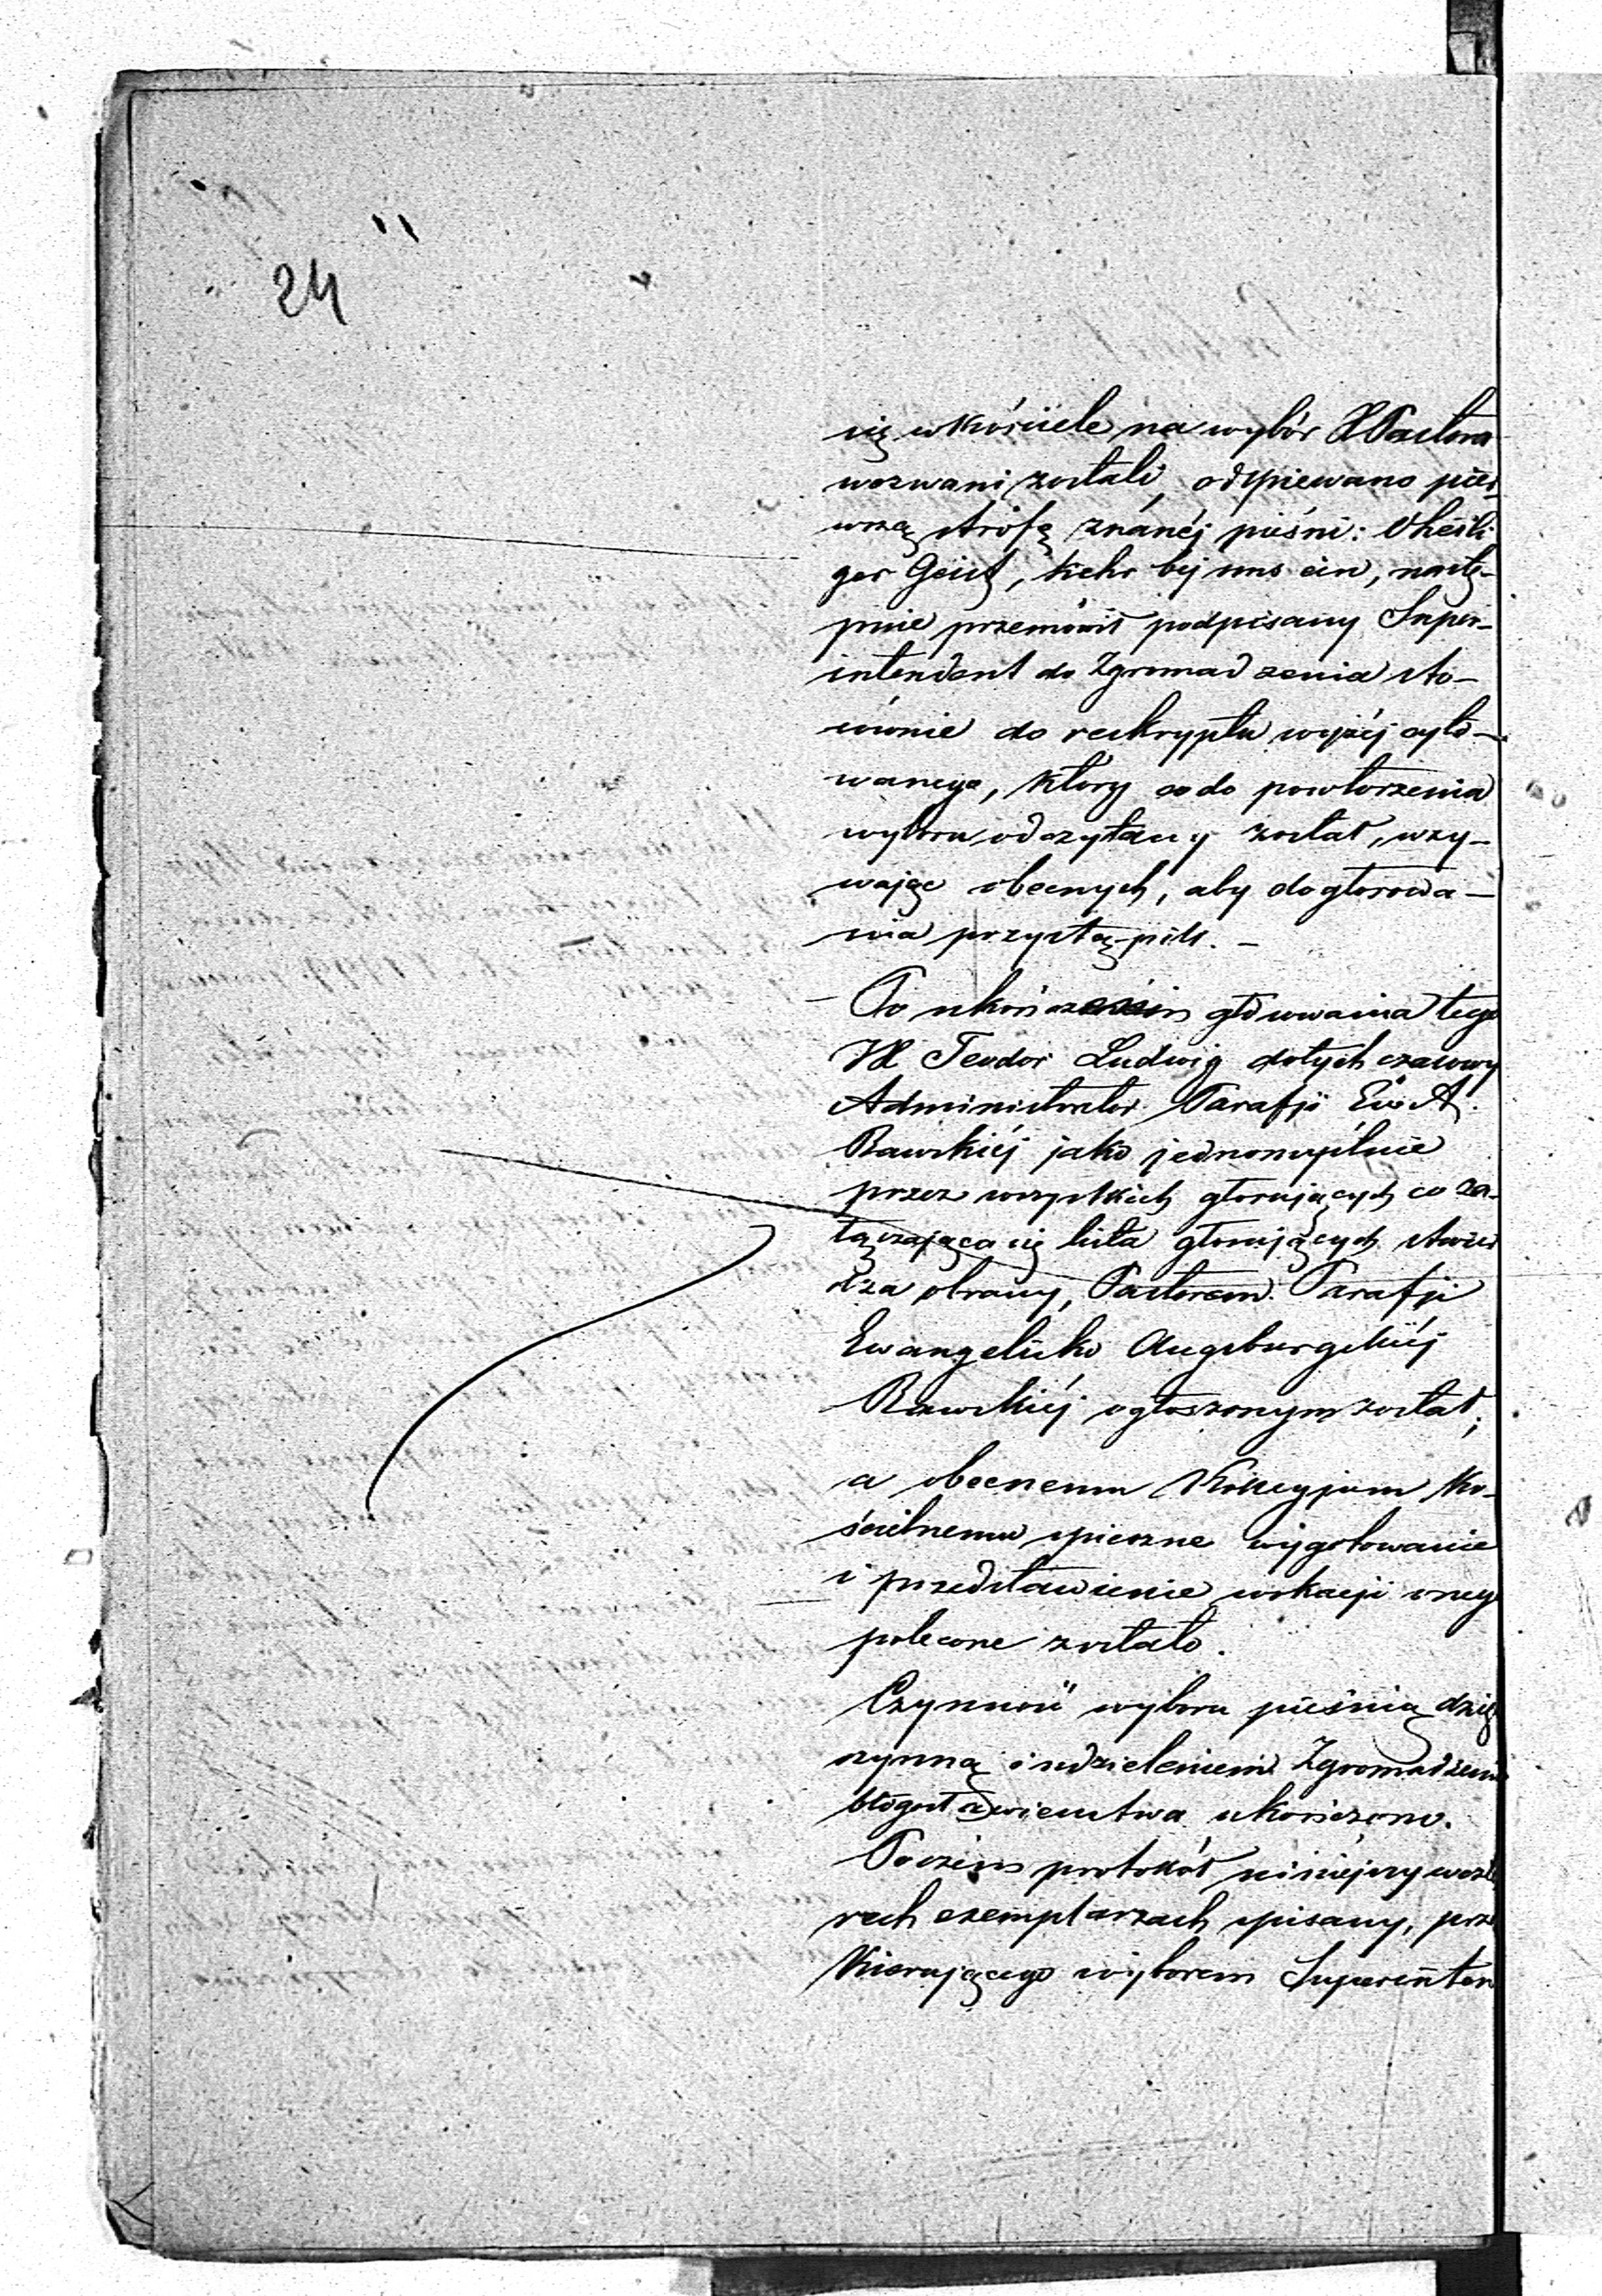 24
się w kościele na wybór X Pastora
wezwani zostali, odśpiewano pier
wszą strofę znanéj pieśni: O heili
ger Geist, kehr bej uns ein, nastę-
pnie przemówił podpisany Super-
intendent do Zgromadzenia sto-
sównie do reskryptu wyżéj cyto-
wanego, który co do powtorzenia
wyboru odczytany został, wzy-
wając obecnych, aby do głosowa-
nia przystąpili. -
- Po ukończeniu głosowania tego
Teodor Ludwig dotychczasowy
Administrator Parafji Ew A.
Rawskiéj jako jednomyślnie
przez wszystkich głosujących co za-
łączająca się lista głosujących stwier
dza obrany, Pastorem Parafji
Ewangelicko Augsburgskiéj
Rawskiéj ogłoszonym został;
a obecnemu Kollegjum Ko-
ścielnemu spieszne wygotowanie
i przedstawienie wokacji onego
polecone zostało.
Czynność wyboru pieśnią dzięk
czynną i udzieleniem Zgromadzeniu
błogosławieństwa ukończono.
Poczém protokół niniejszy w czte
rech exemplarzach spisany, prze
Kierującego wyborem Superinten